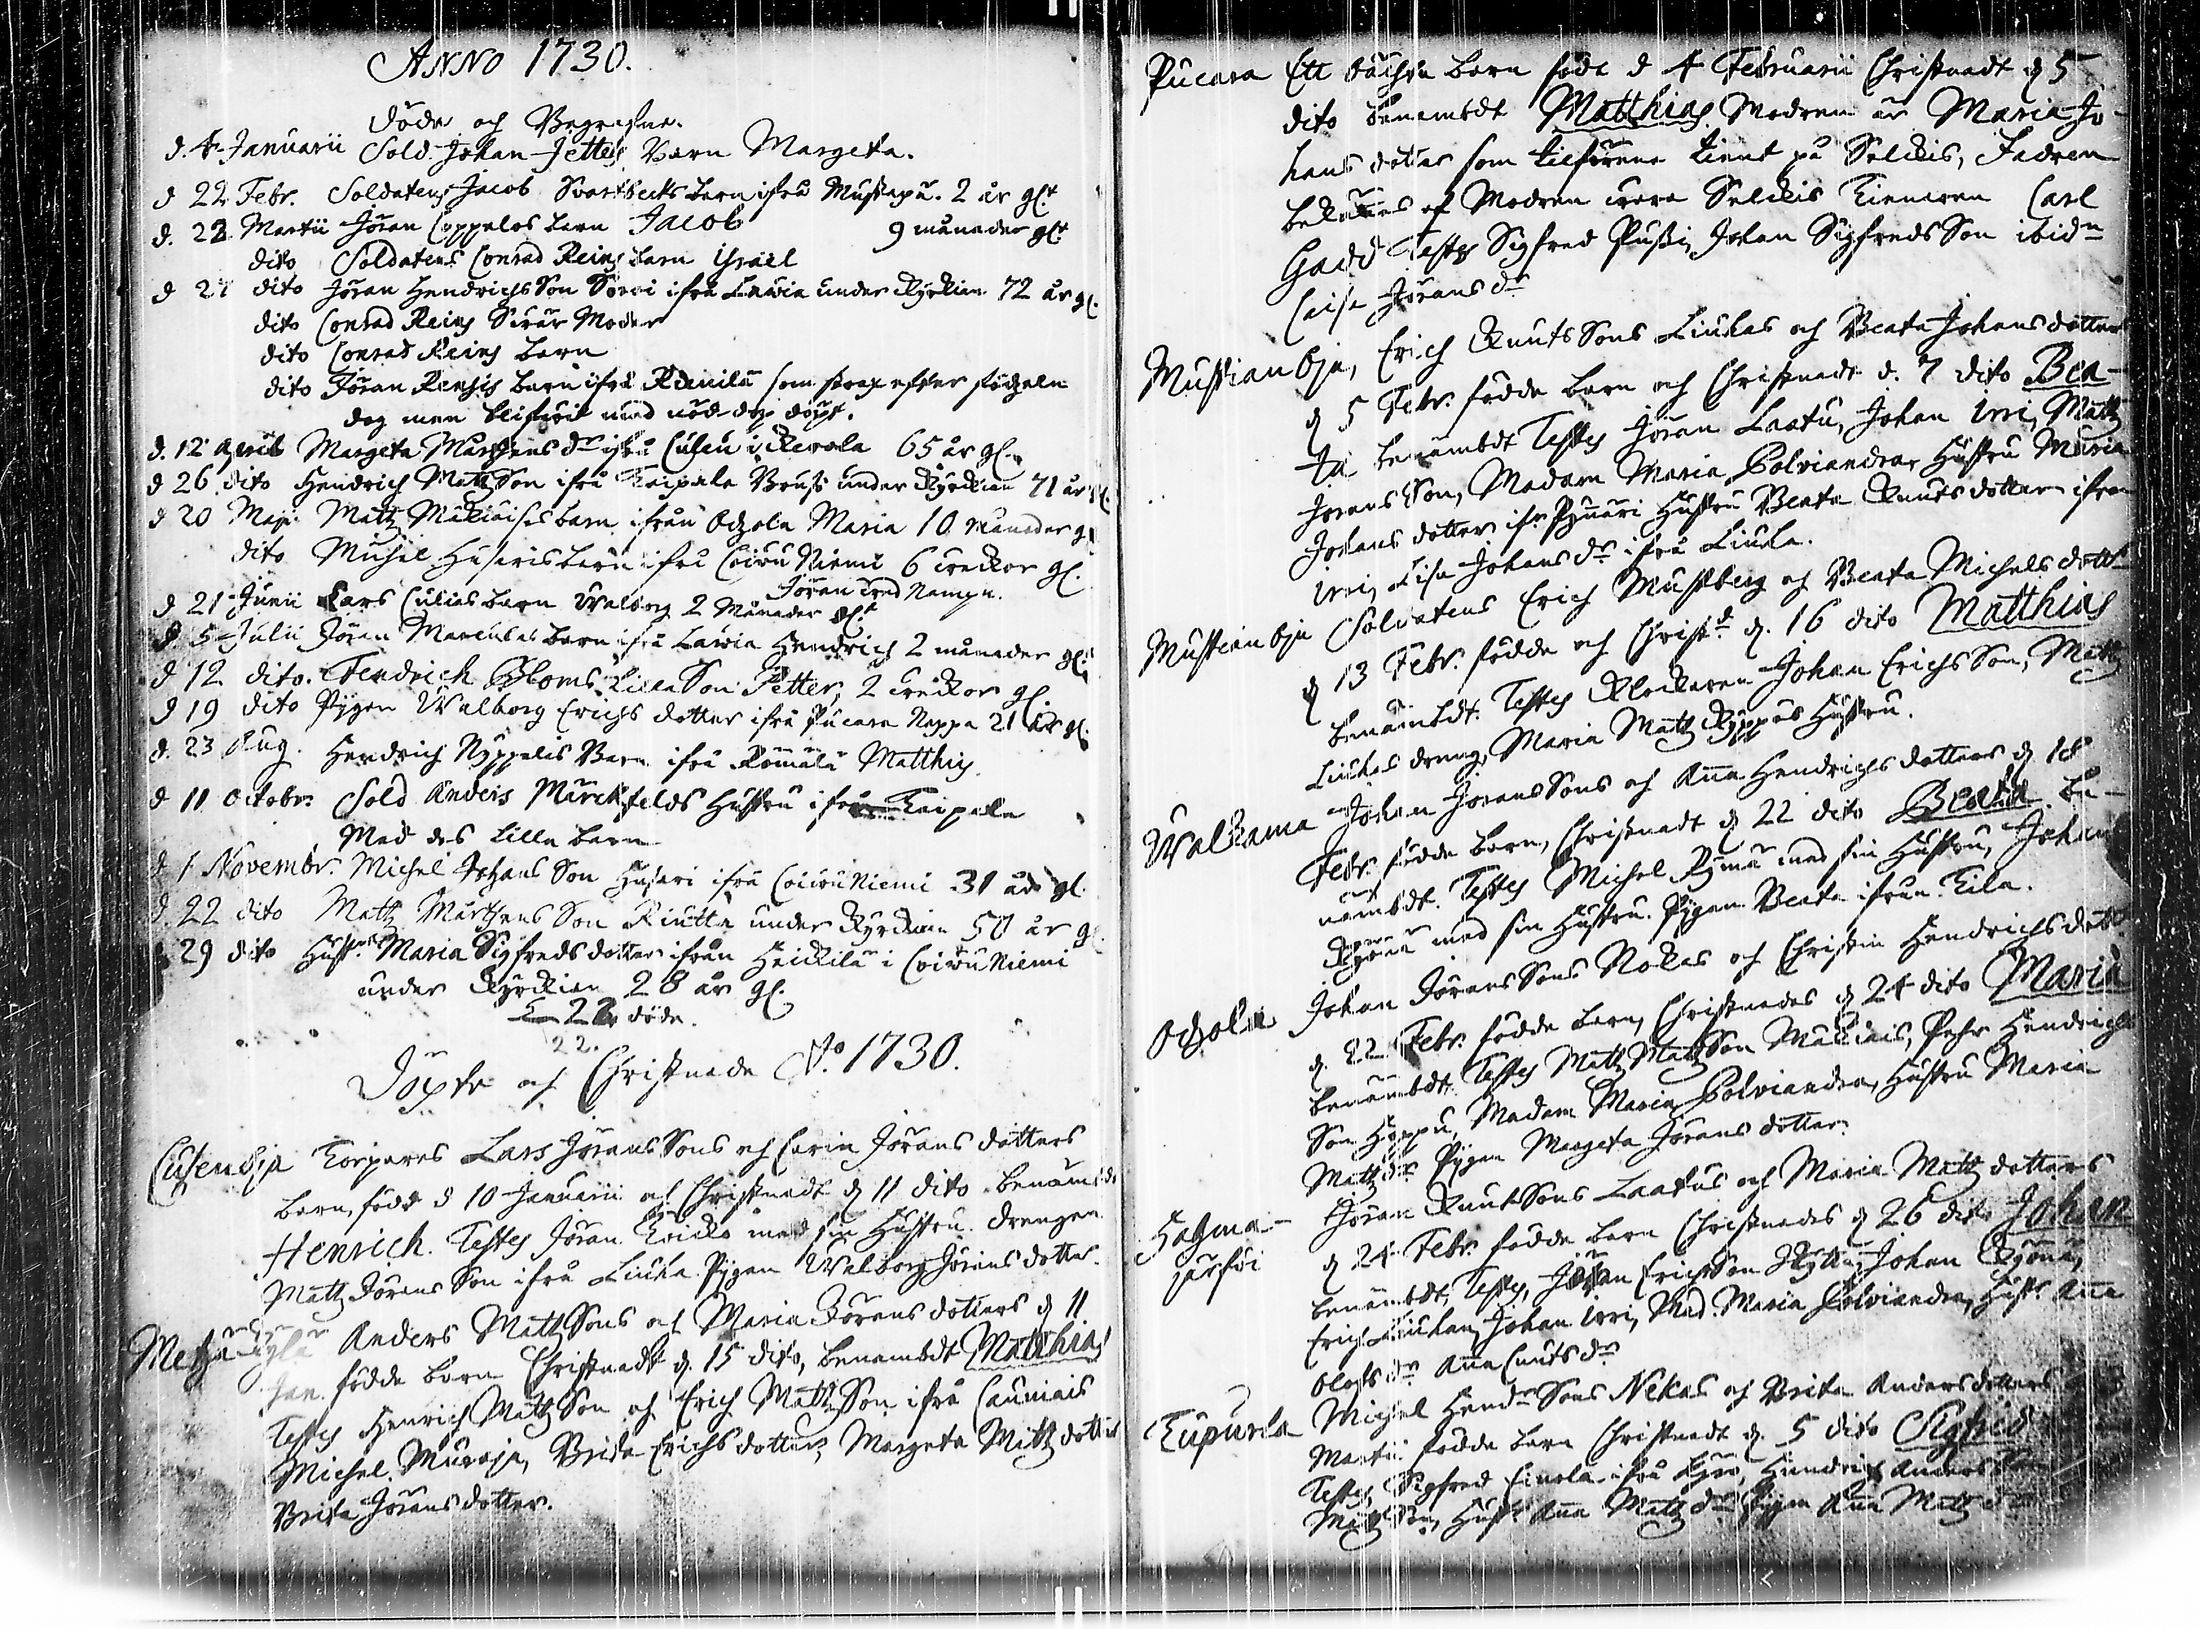 ANNO 1730.
Döde och Begrafne.
d. 4 Januarii Sold. Johan Jettes Barn Margeta.
d 22 Febr. Soldatens Jacob Svartbecks barn ifrå 2 år gl.
d. 22 Martii Jöran Coppelos barn Jacob 9 månader glt
dito Soldatens Conrad Reins barn Israel
d 27 dito Jöran Hendrichs Son ifrå Lawia under Kyrckian 72 år gl.
dito Conrad Reins Swär Moder
dito Conrad Reins barn
dito Jöran barn ifrå som strax efter födzeln
dog men blifwit med nöd dop döpt.
d. 12 Aprili Margeta Mårtens dr ifrå 65 år gl.
d 26 dito Hendrich Mattz Son ifrå Kaipala under Kyrckian 71 år gl.
d 20 Maji Mattz barn ifrån Odzola Maria 10 månader gl
dito Michel Husaris barn ifrå Coiwu Niemi 6 weckor gl.
Jöran wid Nampn.
d 21 Junii Lars Culias barn Walborg 2 Månader glt
d. 5 Julii Jöran barn ifrå Lawia Hendrich 2 månader gl.
d 12 dito. Hendrich Bloms lilla Son Petter, 2 weckor gl.
d 19 dito Pigan Walborg Erichs dotter ifrå Pucara 21 år gl.
d. 23 Aug. Hendrich Barn ifrå Matthis
d 11 Octobr. Sold Anders Hustru ifrå Kaipala
Med des lilla barn
d 1 Novembr. Michel Johans Son Husari ifrå Coiwu Niemi 31 år gl.
d. 22 dito Mattz Mårtens Son Riutta under Kyrckian 50 år gl.
d 29 dito Hustr. Maria Sigfreds dotter ifrån Heickilä i Coiwu Niemi
under Kyrckian 28 år gl.
22 döde.
22.
Döpte och Christnade Ao. 1730.
Cusenoja Torpares Lars Jörans Sons och Carin Jörans dotters
barn, född d 10 Januarii och Christnadt d 11 dito benämbdt
Henrich. Testes Jöran med sin Hustru. drengen
Mattz Jörans Son ifrå Liuha Pigan Walborg Jörans dotter.
Metzäkylä Anders Mattz Sons och Maria Jörans dotters d 11
Jan. födde barn Christnadt d. 15 dito, benämbdt Matthias
Testes Henrich Mattz Son och Erich Mattz Son ifrå Cauniais
Michel Muraja, Brita Erichs dotter, Margeta Mattz dotter
Brita Jörans dotter.
Pucara Ett oächta barn född d 4 Februarii Christnadt d 5
dito benembdt Matthias Modren är Maria Jo-
hans dotter som tilförene tient på Selckis, Fadren
bekännes af Modren wara Selckis Tienaren Carl
Gadd Testes Sigfred Johan Sigfreds Son ibidm
Caisa Jörans dr
Mustianoja, Erich Knuts Sons Liuhas och Beata Johans dotters
d 5 Febr. födde barn och Christnade d. 7 dito Bea-
ta benämbdt Testes Jöran Laatu, Johan Urri, Mattz
Jörans Son, Madam Maria Polviandra, Hustru Maria
Johans dotter Hustru Beata Knuts dotter ifrå
Urri, Lisa Johans dr ifrå Liuha.
Mustianoja Soldatens Erich Mustberg och Beata Michels dotters
d 13 Febr. födde och Christd d. 16 dito Matthias
benämbdt. Testes Klockaren Johan Erichs Son, Mattz
Liuhas dreng, Maria Mattz Hustru.
Walkama Johan Jörans Sons och Anna Hendrichs dotters d 18
Febr. födde barn, Christnadt d 22 dito Beata be-
nembdt. Testes Michel med sin Hustru, Johan
med sin Hustru. Pigan Beata ifrån Kila.
Odzola Johan Jörans Sons Nokas och Christin Hendrichs dotters
d. 22 Febr. födde barn, Christnades d 24 dito Maria
benämbdt. Testes Mattz Mattz Son, Pehr Hendrichs
Son Madam Maria Polviandra, Hustru Maria
Mattz dr Pigan Margeta Jörans dotter.
Halgma- Jöran Knuts Sons Laatus och Maria Mattz dotters
järfwi d 24 Febr. födde barn Christnades d 26 dito Johan
benämbdt, Testes, Johan Erichs Son Johan
Erich Liuhan, Johan Urri, Mad. Maria Polviandra, Hustr. Anna
Olofs dr Anna Cnuts dr
Kupurla Michel Hendr Sons Nekas och Brita Anders dotters
Martii födde barn Christnadt d. 5 dito Sigfrid
Testes Sigfred ifrå Hendrich Anders
Mattz Son, Hustr. Anna Mattz dr Pigan Anna Mattz